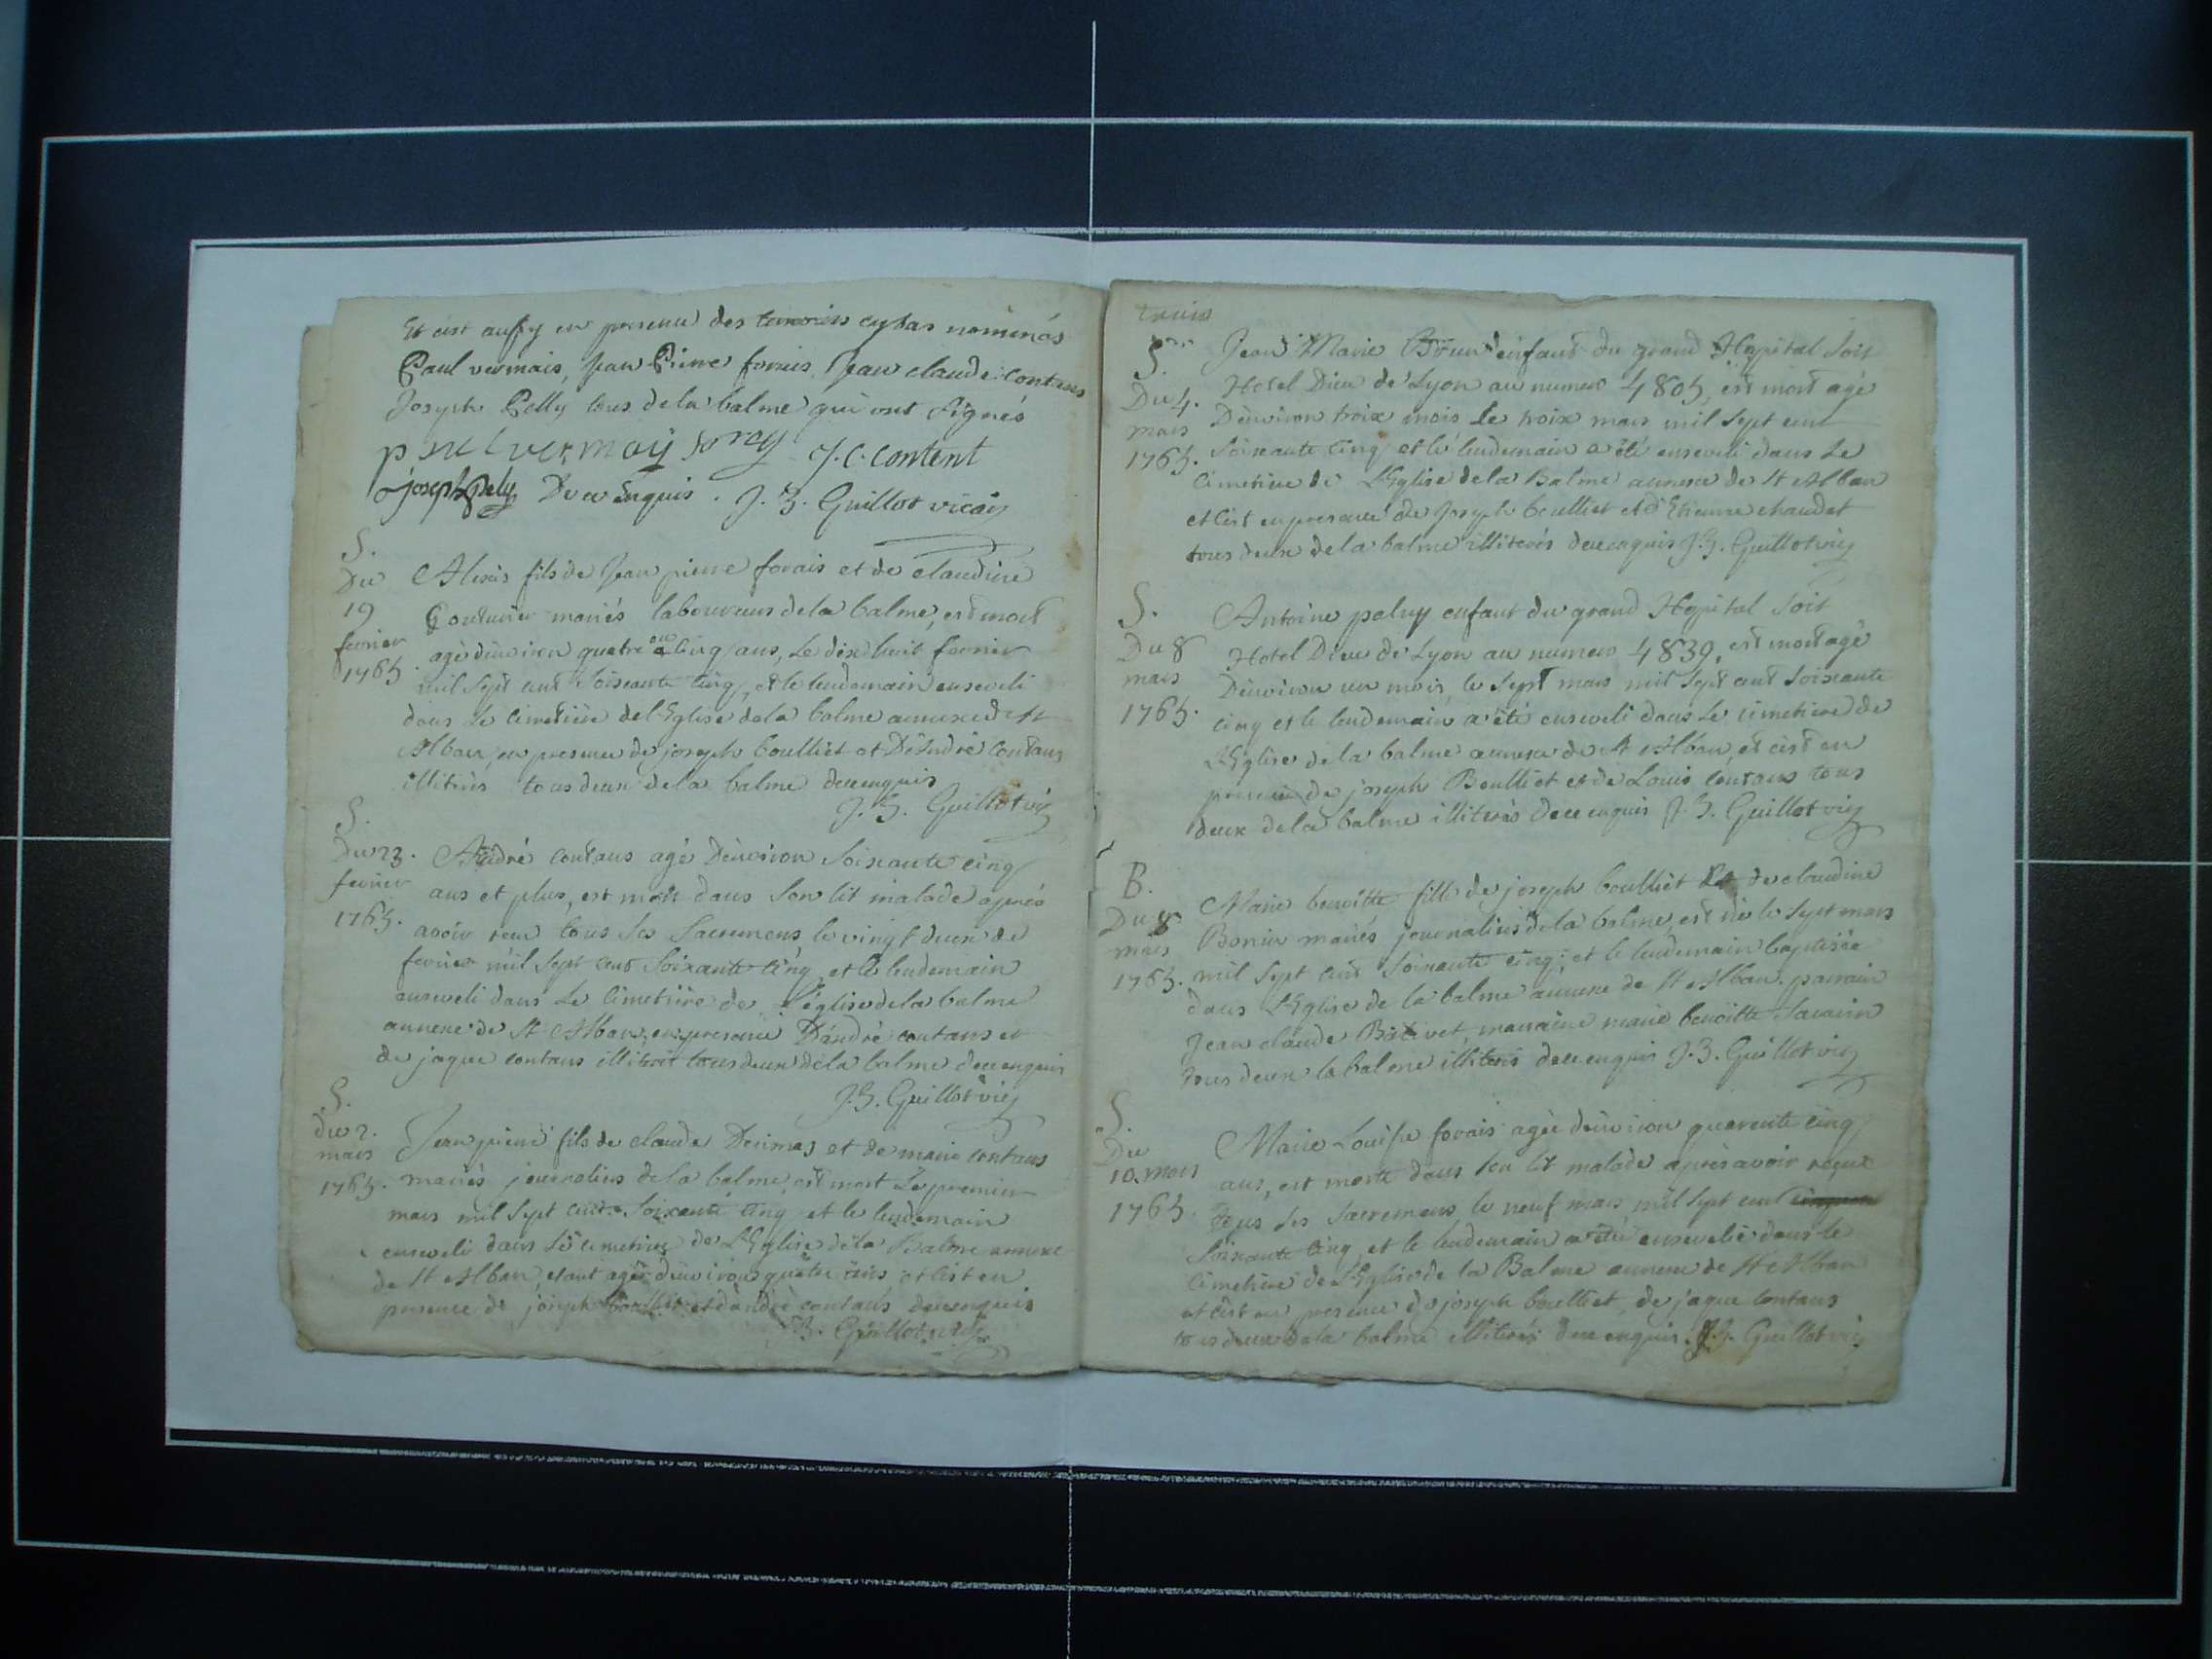 Et c'est aussy en presence des temoins cybas nommés
Paul vermais, Jean Pierre forais, Jean claude contans
Joseph Pelly tous de la balme qui ont signés
paul vermay foray J. C. content
joseph Pely De ce enquis. J. B. Guillot vicaire
S.
Du
19
fevrier
1765.
Alexis fils de Jean pierre forais et de claudine
Couturier mariés laboureurs de la balme, est mort
agé d'environ quatre ou cinq ans, Le dix huit fevrier
mil sept cent soixante cinq, et le lendemain enseveli
dans Le Cimetière de l'Eglise de la balme annexe de St
Alban, en presence de joseph boulliet et D'André contans
illiterés tous deux de la balme de ce enquis
J. B. Guillot vic
S.
Du 23.
fevrier
1765.
André contans agé D'environ soixante cinq
ans et plus, est mort dans son lit malade après
avoir reçu tous ses Sacremens, le vingt deux de
fevrier mil sept cent soixante cinq et le lendemain
enseveli dans Le Cimetière de L'église de la balme
annexe de St Alban, en presence D'andré contans et
de jaque contans illiterés tous deux de la balme de ce enquis
J. B. Guillot vic
S.
du 2.
mars
1765.
Jean pierre fils de claude Decimas et de marie contans
mariés journaliers de la balme, est mort Le premier
mars mil sept cent soixante cinq et le lendemain
enseveli dans Le cimetiere de L'Eglise de la Balme annexe
de St Alban, etant agé d'environ quatre ans et c'est en
presence de joseph boulliet et d'andré contans de ce enquis
J. B. Guillot vic
S.
Du 4.
mars
1765.
Jean Marie Brun enfant du grand Hopital soit
Hotel Dieu de Lyon au numero 4805, est mort agé
D'environ troix mois le troix mars mil sept cent
soixante cinq et le lendemain a été enseveli dans Le
Cimetiere de L'Eglise de la Balme annexe de St Alban
et c'est en presence de Joseph boulliet et d'Etienne chaudet
tous deux de la balme illiterés de ce enquis J. B. Guillot vic
S.
Du 8
mars
1765.
Antoine paluy enfant du grand Hopital soit
Hotel Dieu de Lyon au numero 4839, est mort agé
D'environ un mois, le sept mars mil sept cent soixante
cinq et le lendemain a été enseveli dans Le cimetiere de
L'Eglise de la balme annexe de St Alban, et c'est en
presence de joseph Boulliet et de Louis contans tous
deux de la balme illiterés de ce enquis J. B. Guillot vic
B.
Du 8
mars
1765.
Marie benoitte fille de joseph boulliet et de claudine
Bonier mariés journaliers de la balme, est née le sept mars
mil sept cent soixante cinq; et le lendemain baptisée
dans L'Eglise de la balme annexe de St Alban. parrain
Jean claude Bativet, marraine marie benoitte Savarin
tous deux la balme illiterés de ce enquis J. B. Guillot vic
S.
Du
10. mars
1765
Marie Louise forais agée d'environ quarente cinq
ans, est morte dans son lit malade après avoir reçue
tous ses sacremens le neuf mars mil sept cent
soixante cinq, et le lendemain a été ensevelie dans le
Cimetiere de L'Eglise de la Balme annexe de St Alban
et c'est en presence de joseph boulliet, de jaque contans
tous deux de la balme illiterés de ce enquis. J. B. Guillot vic